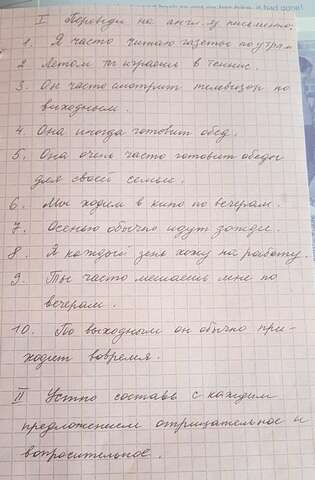 I Переведи на англ. яз письменно:
1. Я часто читаю газеты по утрам
2 Летом ты играешь в теннис.
3. Он часто смотрит телевизор по
выходным.
4. Она иногда готовит обед.
5. Она очень часто готовит обеды
для своей семьи.
6. Мы ходим в кино по вечерам.
7. Осенью обычно идут дожди.
8. Я каждый день хожу на работу.
9. Ты часто мешаешь мне по
вечерам.
10. По выходным он обычно при-
ходит вовремя.
II Устно составь с каждым
предложением отрицательное и
вопросительное.